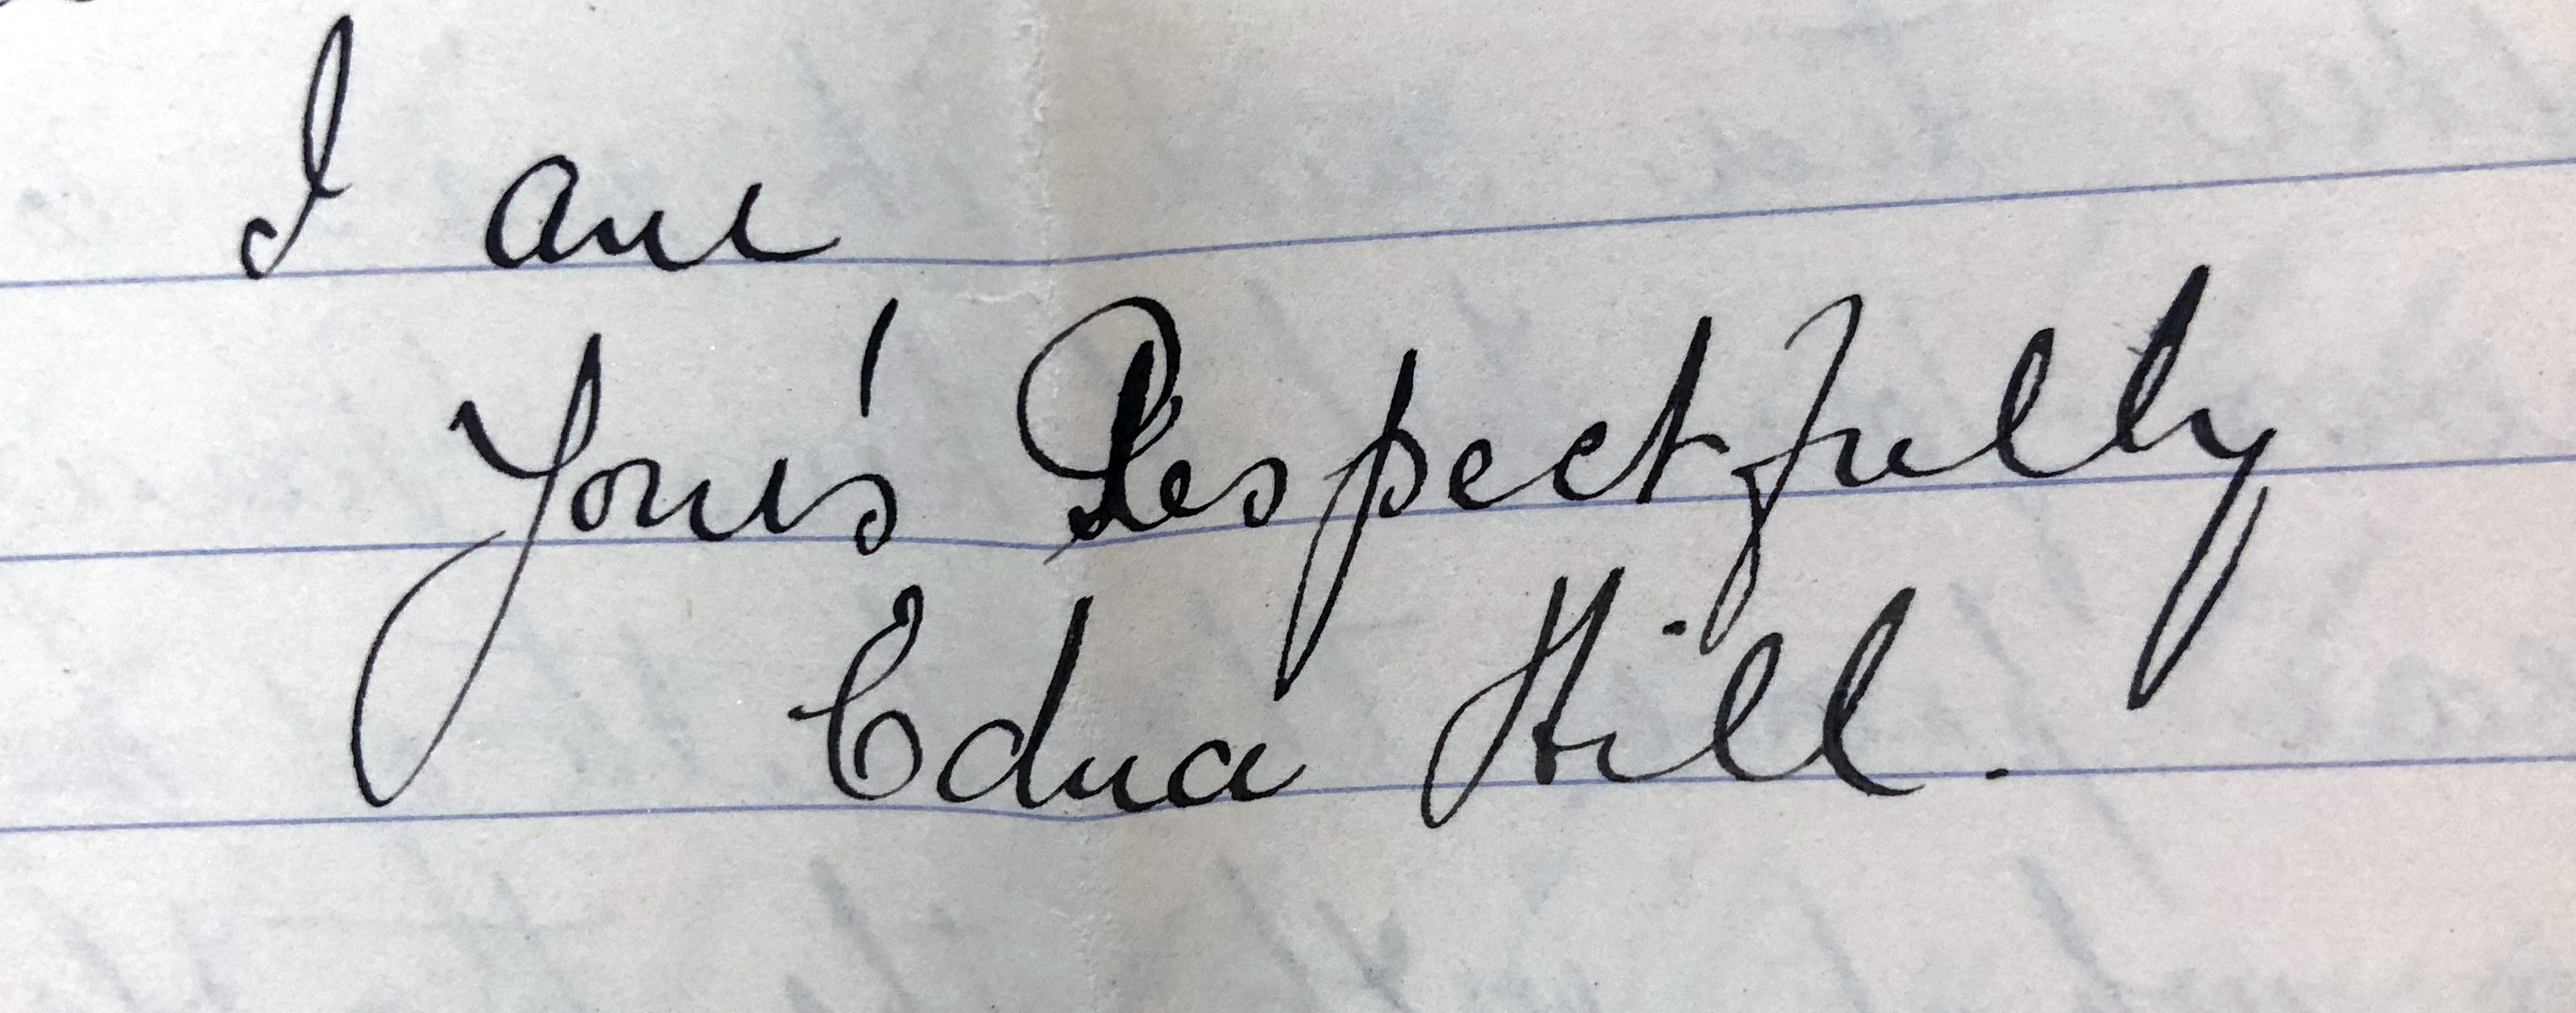 I am
Your's Respectfully
Edna Hill.